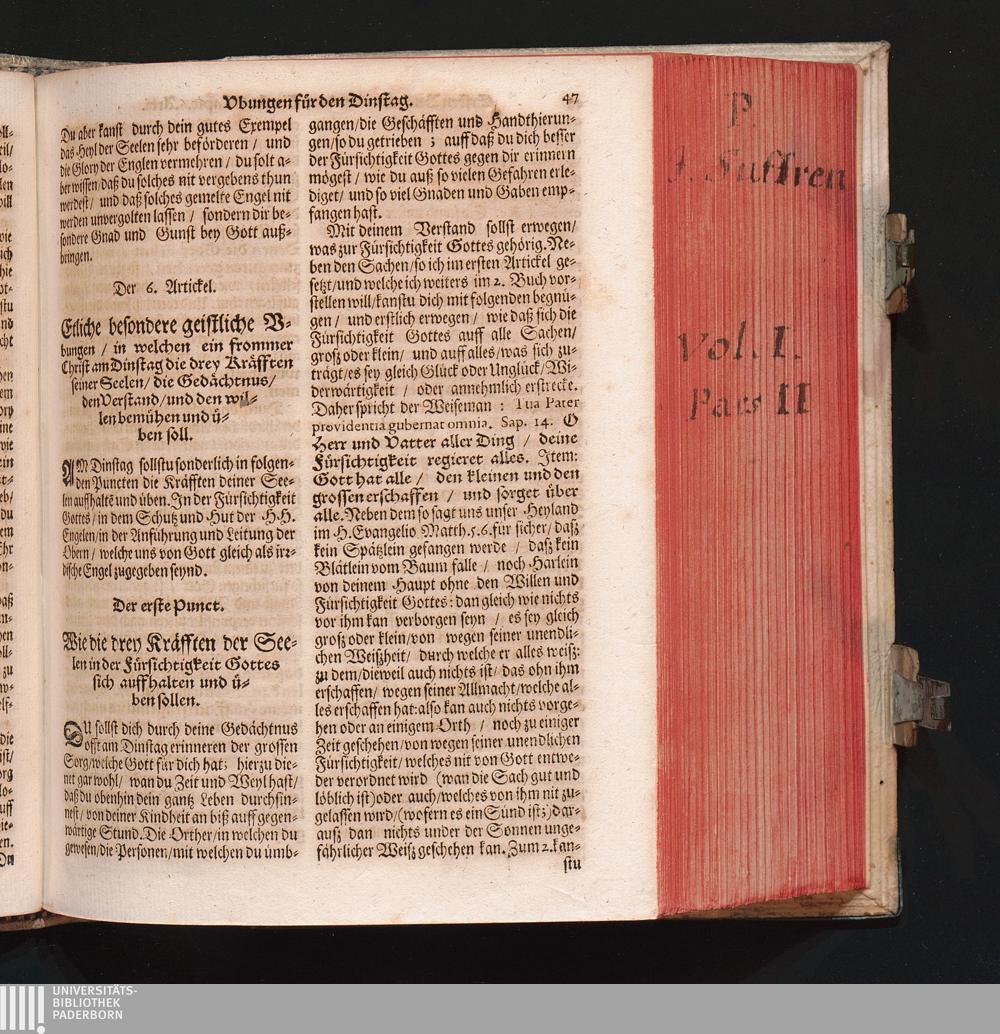 Vbungen für den Dinstag. 47
Du aber kanst durch dein gutes Exempel
das Heyl der Seelen sehr beförderen / und
die Glory der Englen vermehren / du solt a-
ber wissen / daß du solches nit vergebens thun
werdest / und daß solches gemelte Engel nit
werden unvergolten lassen / sondern dir be-
sondere Gnad und Gunst bey Gott auß-
bringen.
Der 6. Artickel.
Etliche besondere geistliche V-
bungen / in welchen ein frommer
Christ am Dinstag die drey Kräfften
seiner Seelen / die Gedächtnus /
den Verstand / und den wil-
len bemühen und ü-
ben soll.
AM Dinstag sollstu sonderlich in folgen-
den Puncten die Kräfften deiner See-
len auffhalte und üben. In der Fürsichtigkeit
Gottes / in dem Schutz und Hut der H.H.
Engelen / in der Anführung und Leitung der
Obern / welche uns von Gott gleich als irr-
dische Engel zugegeben seynd.
Der erste Punct.
Wie die drey Kräfften der See-
len in der Fürsichtigkeit Gottes
sich auffhalten und ü-
ben sollen.
DU sollst dich durch deine Gedächtnus
offt am Dinstag erinneren der grossen
Sorg / welche Gott für dich hat; hierzu die-
net gar wohl / wan du Zeit und Weyl hast /
daß du obenhin dein gantz Leben durchsin-
nest / von deiner Kindheit an biß auff gegen-
wärtige Stund. Die Orther / in welchen du
gewesen / die Personen / mit welchen du ümb-
gangen / die Geschäfften und Handthierun-
gen / so du getrieben ; auff daß du dich besser
der Fürsichtigkeit Gottes gegen dir erinnern
mögest / wie du auß so vielen Gefahren erle-
diget / und so viel Gnaden und Gaben emp-
fangen hast.
Mit deinem Verstand sollst erwegen /
was zur Fürsichtigkeit Gottes gehörig. Ne-
ben den Sachen / so ich im ersten Artickel ge-
setzt / und welche ich weiters im 2. Buch vor-
stellen will / kanstu dich mit folgenden begnü-
gen / und erstlich erwegen / wie daß sich die
Fürsichtigkeit Gottes auff alle Sachen /
groß oder klein / und auff alles / was sich zu-
trägt / es sey gleich Glück oder Unglück / Wi-
derwärtigkeit / oder annehmlich erstrecke.
Daher spricht der Weiseman : Tua Pater
providentia gubernat omnia. Sap. 14. O
Herr und Vatter aller Ding / deine
Fürsichtigkeit regieret alles. Item:
Gott hat alle / den kleinen und den
grossen erschaffen / und sorget über
alle. Neben dem so sagt uns unser Heyland
im H. Evangelio Matth. 5. 6. für sicher / daß
kein Spätzlein gefangen werde / daß kein
Blätlein vom Baum falle / noch Härlein
von deinem Haupt ohne den Willen und
Fürsichtigkeit Gottes : dan gleich wie nichts
vor ihm kan verborgen seyn / es sey gleich
groß oder klein / von wegen seiner unendli-
chen Weißheit / durch welche er alles weiß:
zu dem / dieweil auch nichts ist / das ohn ihm
erschaffen / wegen seiner Allmacht / welche al-
les erschaffen hat: also kan auch nichts vorge-
hen oder an einigem Orth / noch zu einiger
Zeit geschehen / von wegen seiner unendlichen
Fürsichtigkeit / welches nit von Gott entwe-
der verordnet wird (wan die Sach gut und
löblich ist) oder auch / welches von ihm nit zu-
gelassen wird / (wofern es ein Sünd ist;) dar-
auß dan nichts under der Sonnen unge-
fährlicher Weiß geschehen kan. Zum 2. kan-
stu
P.
J. Suffren
Vol. I.
Pars II
UNIVERSITÄTS-
BIBLIOTHEK
PADERBORN